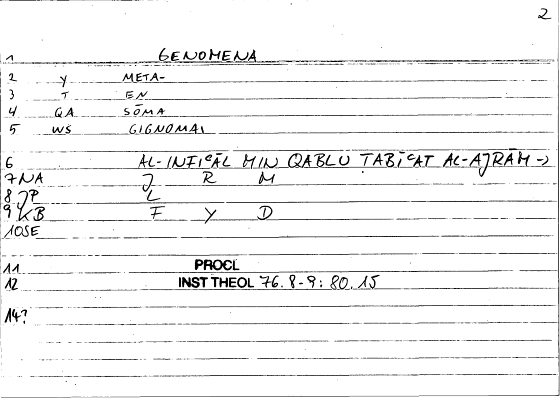 2
1 GENOMENA
2 Y META-
3 T EN
4 QA SŌMA
5 WS GIGNOMAI
6 AL-INFIʿĀL MIN QABLU TABĪʿAT AL-AJRĀM →
7 NA J R M
8 JP L
9 KB F Y D
10 SE
11 PROCL
12 INST THEOL 76.8-9: 80.15
14?